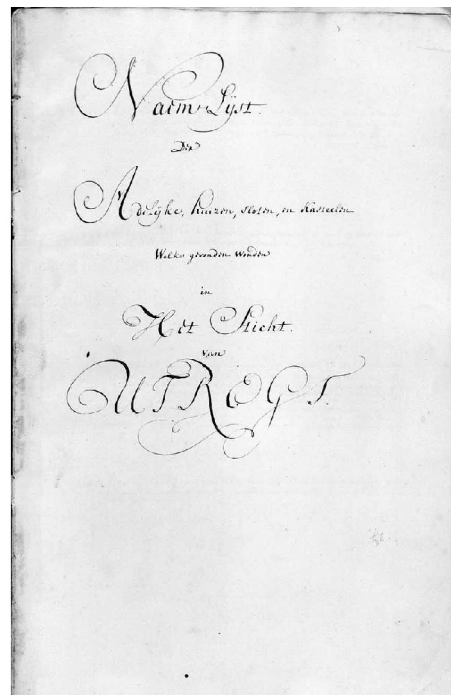 Naem-Lijst.
Der
Adelijke, huizen, sloten, en Kasteelen
Welke gevonden worden
in
Het Sticht.
van
UTREGT.